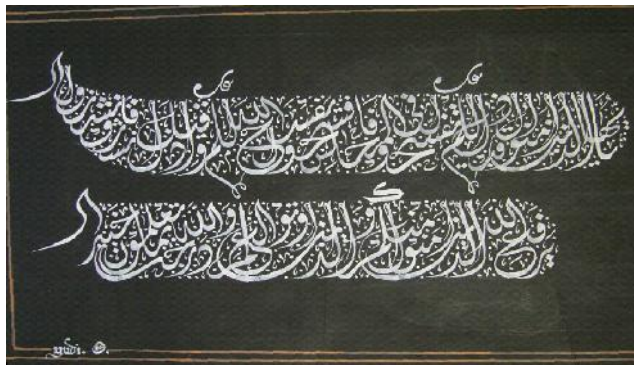 يا أيها الذين آمنوا إذا قيل لكم تفسحوا في المجالس فافسحوا يفسح الله لكم وإذا قيل انشزوا فانشزوا
يرفع الله الذين آمنوا منكم والذين أوتوا العلم درجات والله بما تعملون خبير
yudi.